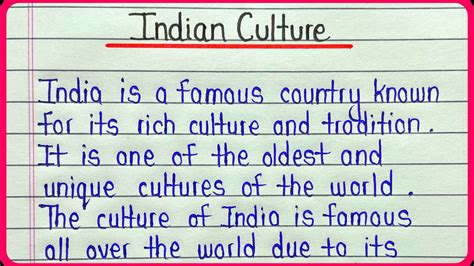 Indian Culture
India is a famous country known
for its rich culture and tradition.
It is one of the oldest and
unique cultures of the world.
The culture of India is famous
all over the world due to its